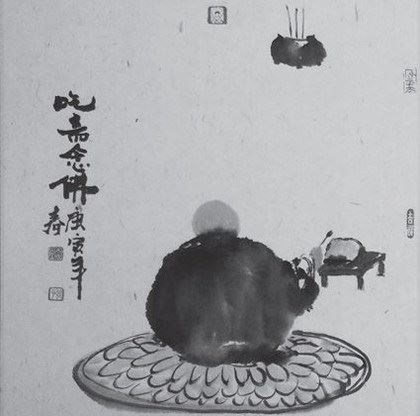 吃斋念佛
庚寅年
寿